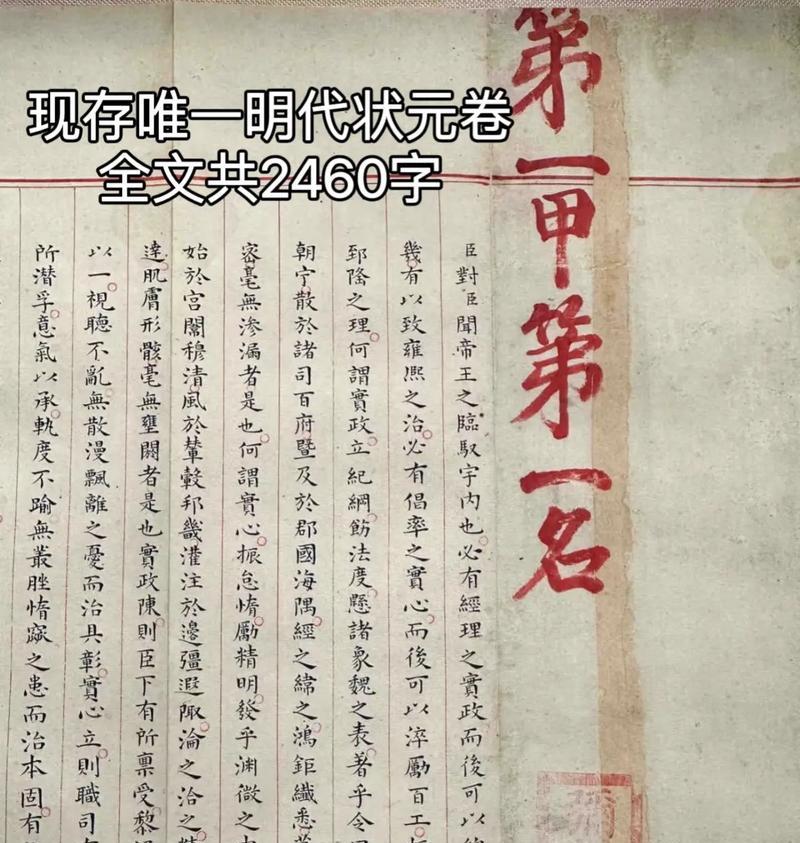 现存唯一明代状元卷
全文共2460字
第一甲第一名
臣對臣聞帝王之臨馭宇內也必有經理之實政而後可以
幾有以致雍熙之治必有倡率之實心而後可以淬勵百工
郅隆之理何謂實政立紀綱飭法度懸諸象魏之表著乎令
朝宁散於諸司百府暨及於郡國海隅經之緯之鴻鉅纖悉
密毫無滲漏者是也何謂實心振怠惰勵精明發乎淵微之
始於宮闈穆清風於輦轂邦畿灌注於邊疆遐陬淪之洽之
達肌膚形骸毫無壅閼者是也實政陳則臣下有所稟受黎
以一視聽不亂無散漫飄離之憂而治具彰實心立則職司
所潛孚意氣以承軌度不踰無叢脞惰窳之患而治本固有